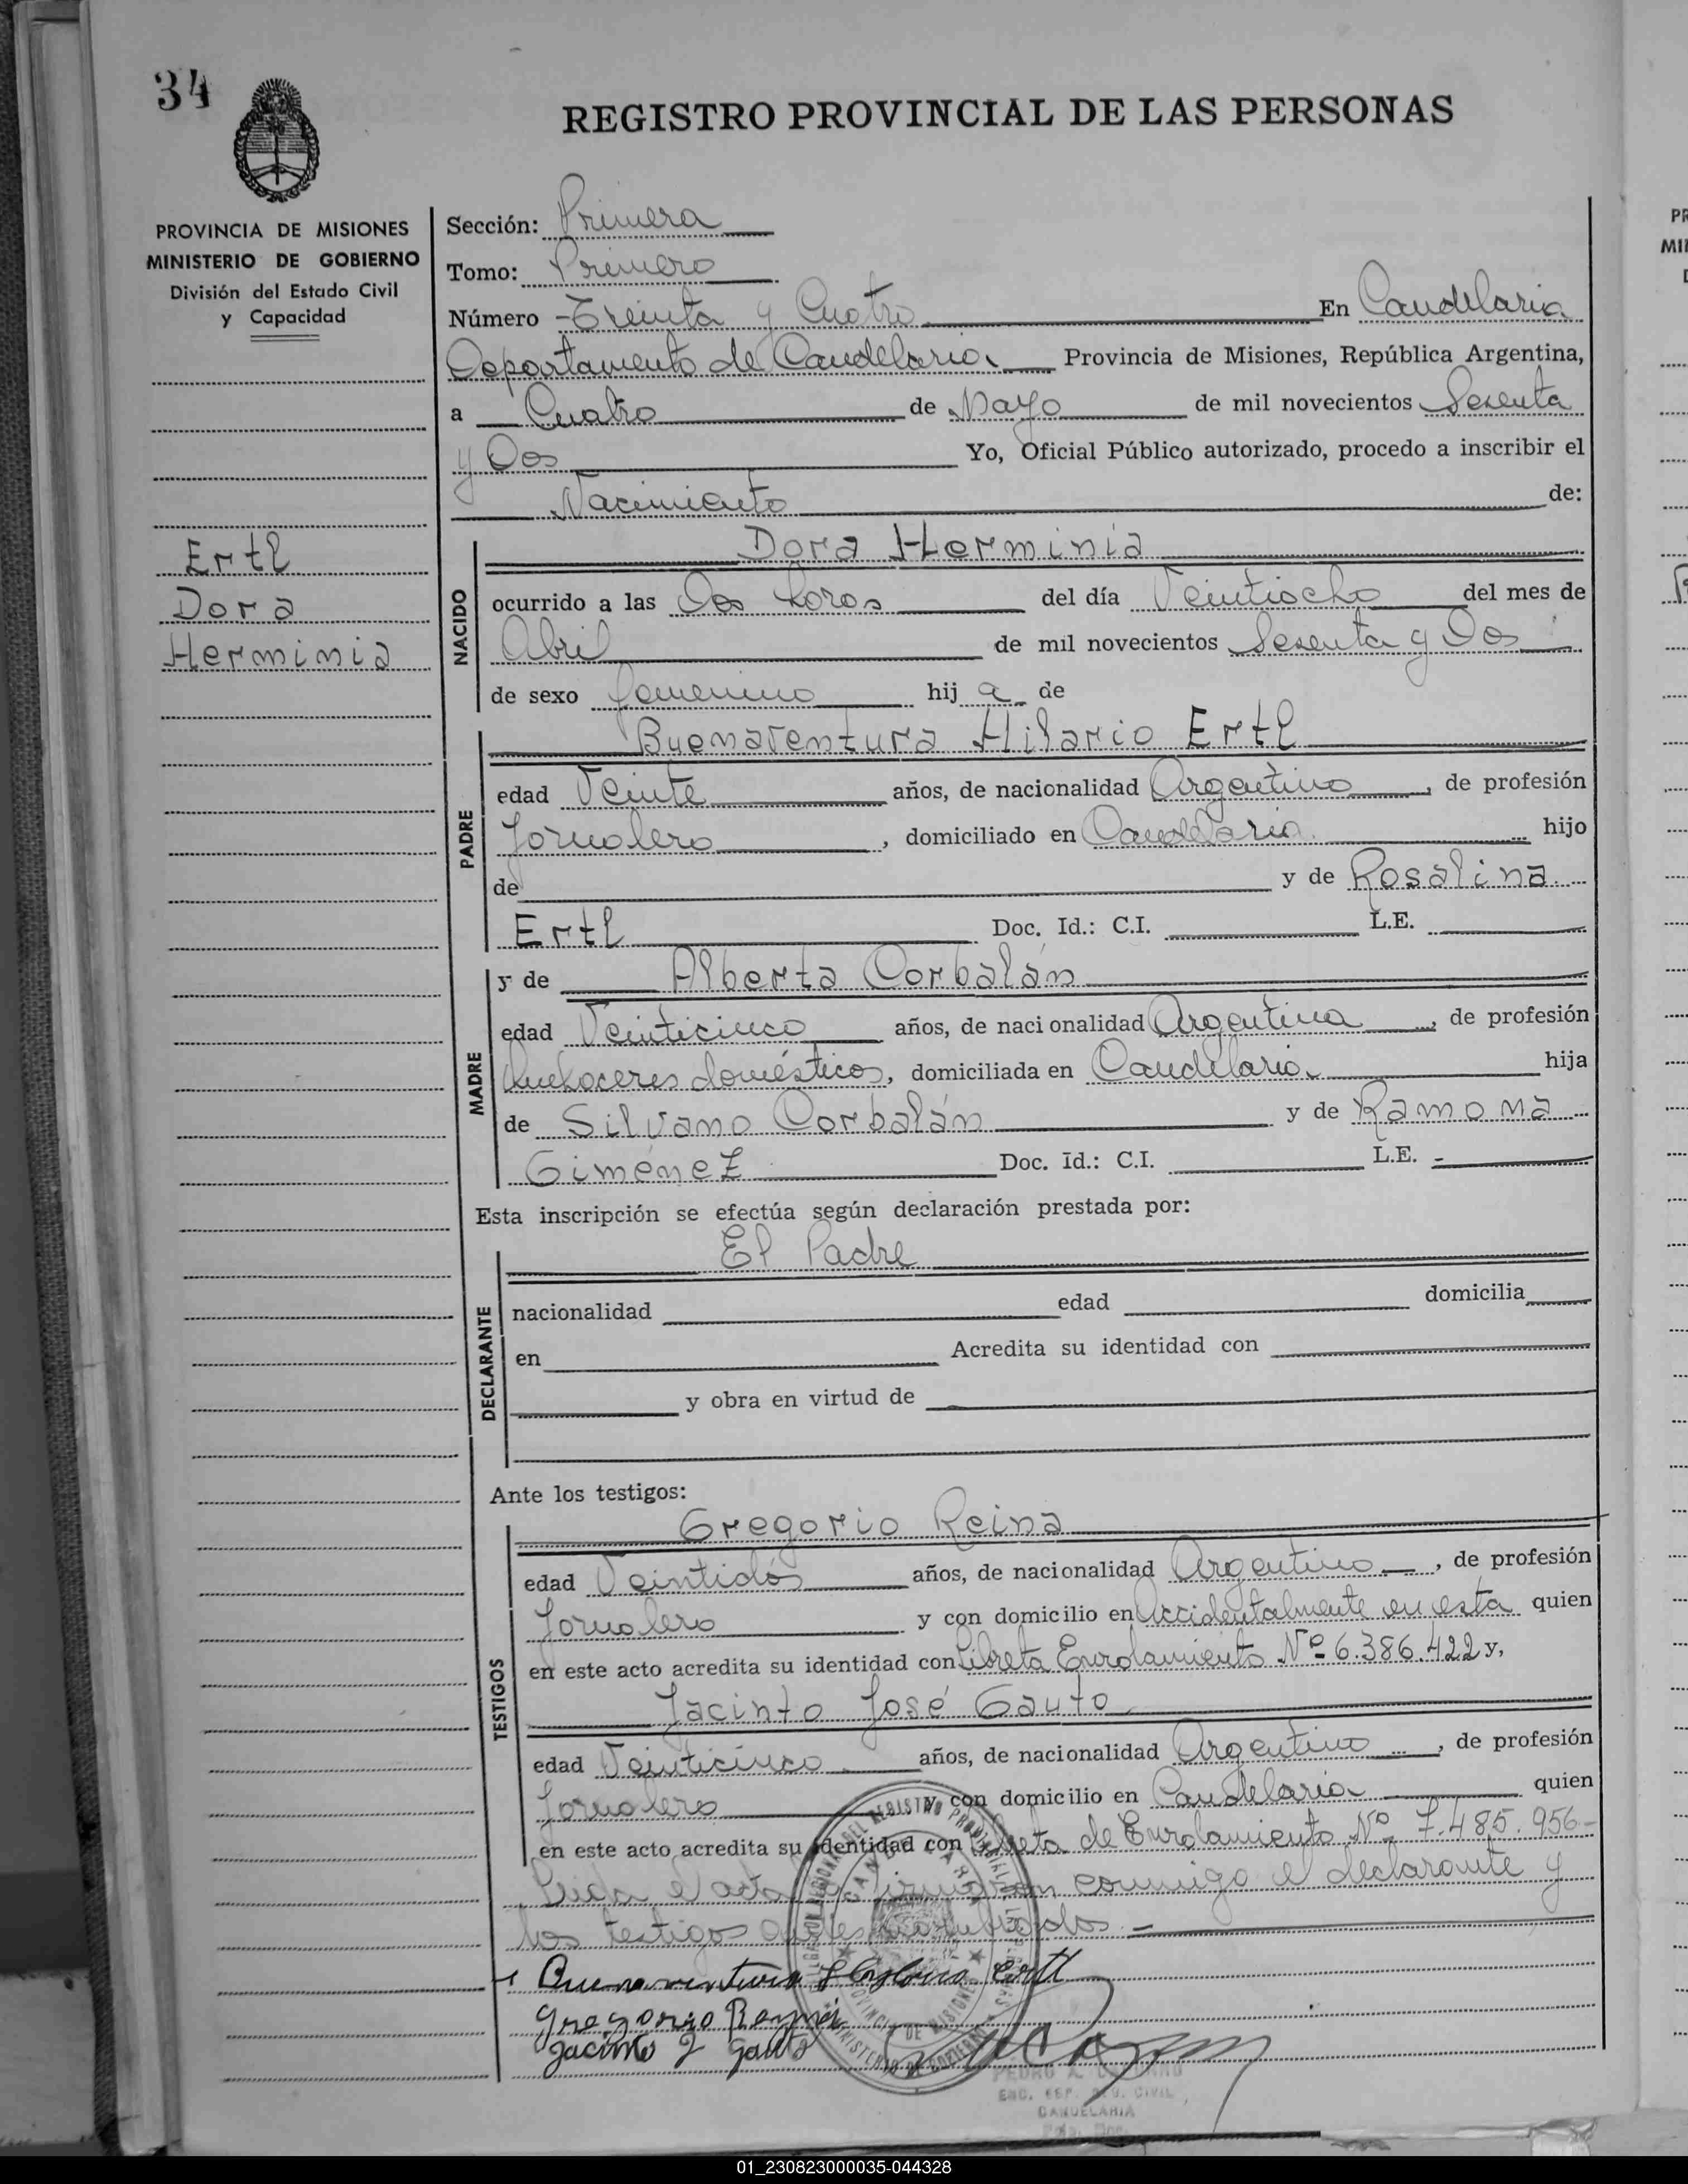 34
REGISTRO PROVINCIAL DE LAS PERSONAS
PROVINCIA DE MISIONES
MINISTERIO DE GOBIERNO
División del Estado Civil
y Capacidad
Sección: Primera
Tomo: Primero
Número Treinta y Cuatro En Candelaria
Departamento de Candelaria Provincia de Misiones, República Argentina,
a Cuatro de Mayo de mil novecientos Sesenta
y Dos Yo, Oficial Público autorizado, procedo a inscribir el
Nacimiento de:
Ertl
Dora
Herminia
NACIDO
Dora Herminia
ocurrido a las Dos horas del día Veintiocho del mes de
Abril de mil novecientos Sesenta y Dos
de sexo femenino hij a de
PADRE
Buenaventura Hilario Ertl
edad Veinte años, de nacionalidad Argentino, de profesión
Jornalero, domiciliado en Candelaria hijo
de y de Rosalina
Ertl Doc. Id.: C.I. L.E.
MADRE
y de Alberta Corbalán
edad Veinticinco años, de nacionalidad Argentina, de profesión
Quehaceres domésticos, domiciliada en Candelaria hija
de Silvano Corbalán y de Ramona
Giménez Doc. Id.: C.I. L.E. -
Esta inscripción se efectúa según declaración prestada por:
DECLARANTE
El Padre
nacionalidad edad domicilia
en Acredita su identidad con
y obra en virtud de
Ante los testigos:
TESTIGOS
Gregorio Reina
edad Veintidós años, de nacionalidad Argentino, de profesión
Jornalero y con domicilio en Accidentalmente en esta quien
en este acto acredita su identidad con Libreta Enrolamiento Nº 6.386.422 y,
Jacinto José Gauto
edad Veinticinco años, de nacionalidad Argentino, de profesión
Jornalero y con domicilio en Candelaria quien
en este acto acredita su identidad con Libreta de Enrolamiento Nº 7.485.956-
Leída el acta la firmaron conmigo el declarante y
los testigos antes nombrados.-
Buenaventura Ertl
Gregorio Reyna
Jacinto J Gauto
PEDRO A.
CANDELARIA
01_230823000035-044328